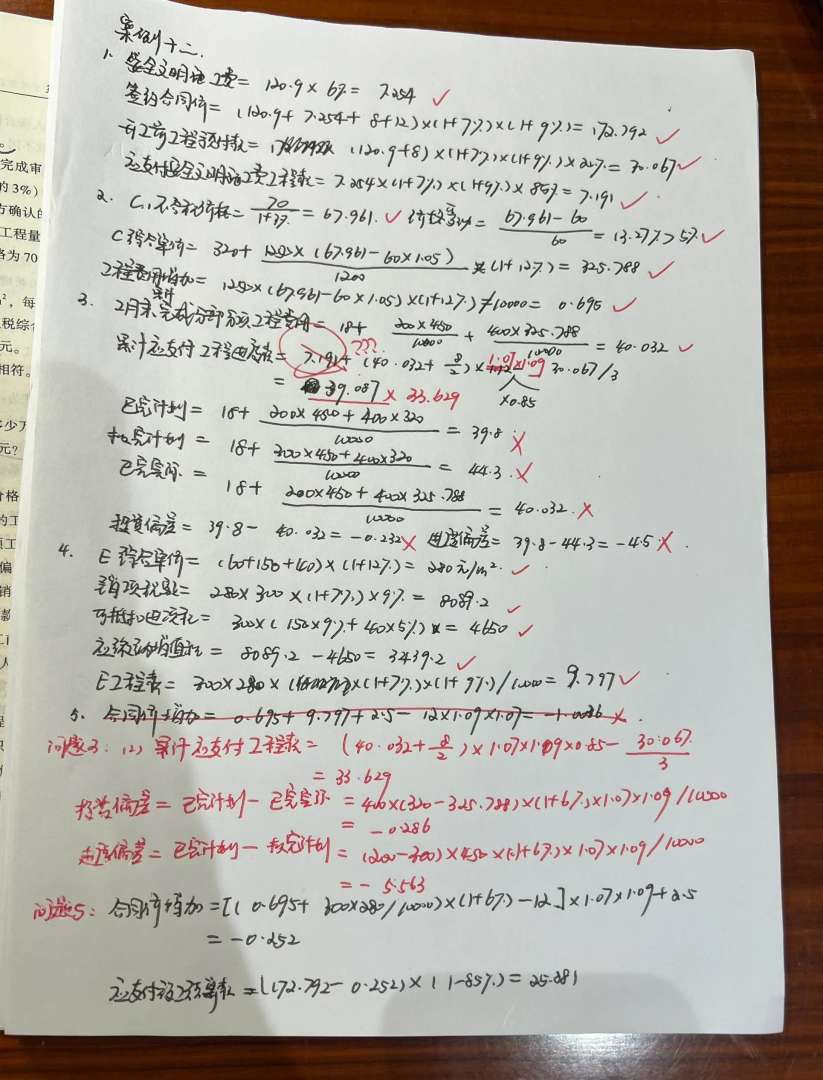 完成审
的3%)
方确认的
工程量
格为70
m²，每
税综合
元。
相符。
多少万
元？
案例十二.
1. 安全文明施工费= 120.9×6%= 7.254 ✓
签约合同价= (120.9+7.254+8+12)×(1+7%)×(1+9%)=172.792 ✓
开工前工程预付款= (120.9+8)×(1+7%)×(1+9%)×20%=30.067 ✓
应支付安全文明施工费工程款= 7.254×(1+7%)×(1+9%)×85%=7.191 ✓
2. C1不含税价格= 70/1+3% = 67.961. ✓ 67.961-60/60 = 13.27%>5% ✓
C综合单价= 320+ 1250×(67.961-60×1.05)/1200 ×(1+12%)= 325.788 ✓
工程费用增加= 1250×(67.961-60×1.05)×(1+12%)/10000= 0.695 ✓
3. 2月末完成分部分项工程费用= 18+ 200×450/10000 + 400×325.788/10000 = 40.032 ✓
累计应支付工程进度款= 7.191+ ??? (40.032+8/2)×1.07×1.09 30.067/3
×0.85
= 39.087 × 33.629
已完计划= 18+ 200×450+400×320/10000 = 39.8 ×
拟完计划= 18+ 300×450+400×320/10000 = 44.3. ×
已完实际= 18+ 200×450+400×325.788/10000 = 40.032. ×
投资偏差= 39.8- 40.032=-0.232 × 进度偏差= 39.8-44.3=-4.5 ×.
4. E综合单价= (60+150+40)×(1+12%)=280元/m². ✓
销项税额= 280×300×(1+7%)×9%= 8089.2 ✓
可抵扣进项税= 300×(150×9%+40×5%) = 4650 ✓
应缴纳增值税= 8089.2-4650=3439.2 ✓
E工程款= 300×280×(1+7%)×(1+9%)/10000= 9.797 ✓
5. 合同价增加= 0.695+9.797+2.5-12×1.09×1.07=-1.0036 ×
问题3: (2) 累计应支付工程款= (40.032+8/2)×1.07×1.09×0.85- 30.067/3
= 33.629
投资偏差= 已完计划-已完实际=400×(320-325.788)×(1+6%)×1.07×1.09/10000
= -0.286
进度偏差= 已完计划-拟完计划= (200-300)×450×(1+6%)×1.07×1.09/10000
= - 5.563
问题5: 合同价增加=[(0.695+300×280/10000)×(1+6%)-12]×1.07×1.09+2.5
= -0.252
=(172.792-0.252)×(1-85%)=25.881